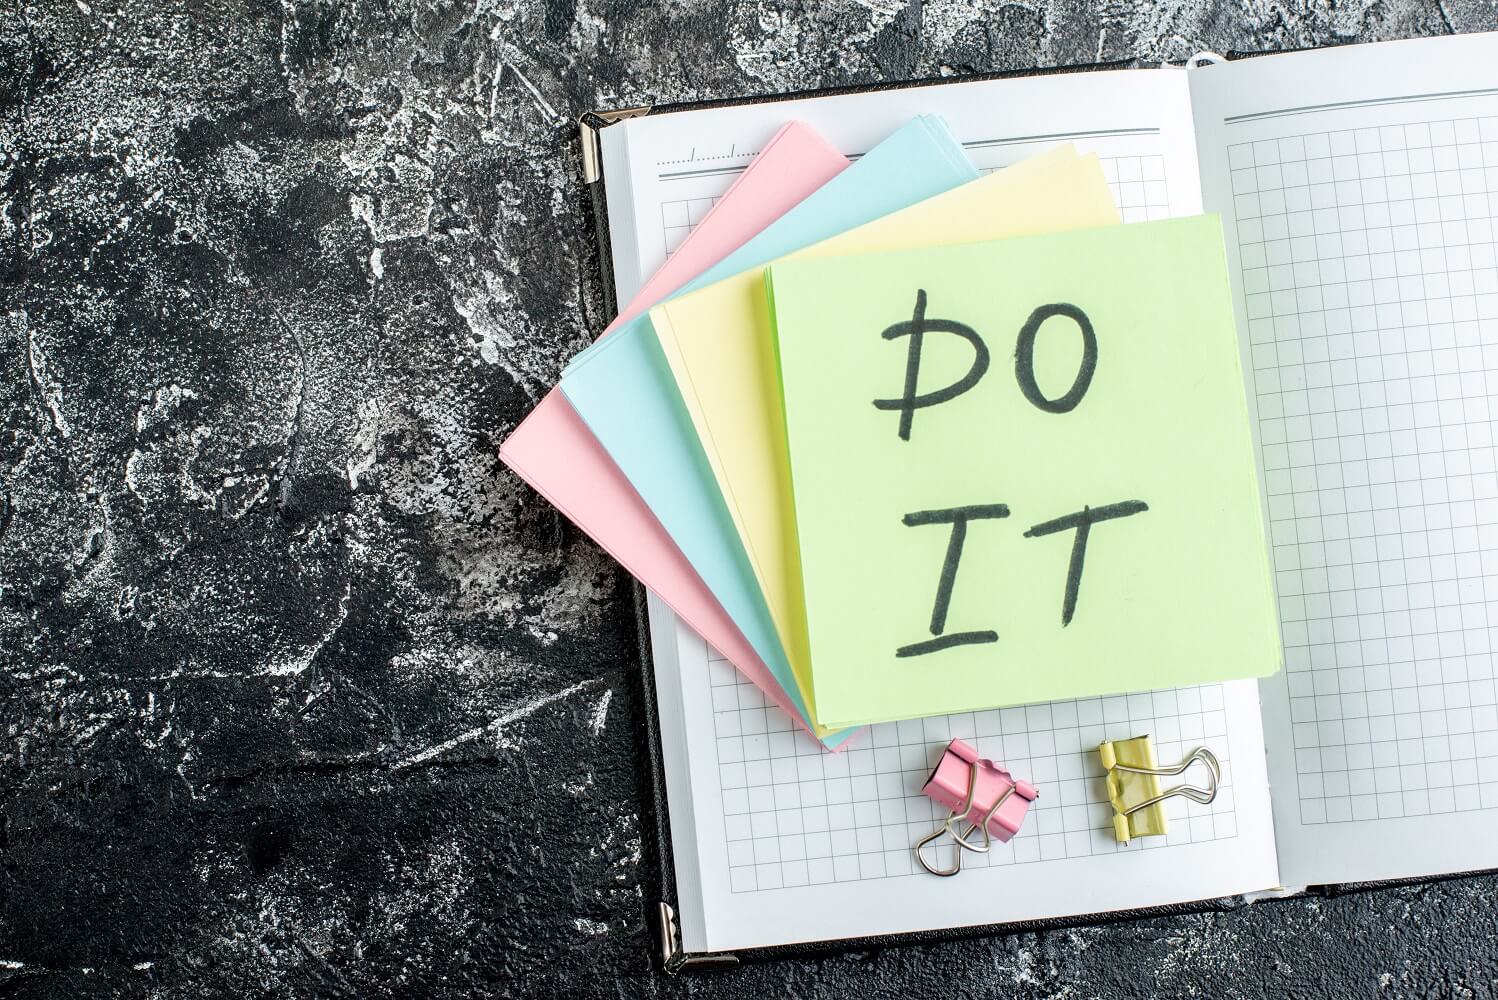 DO
IT